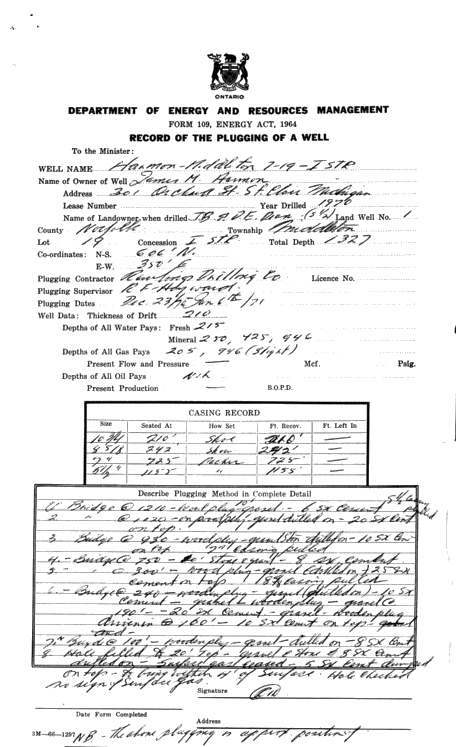 ONTARIO
DEPARTMENT OF ENERGY AND RESOURCES MANAGEMENT
FORM 109, ENERGY ACT, 1964
RECORD OF THE PLUGGING OF A WELL
To the Minister:
WELL NAME Harmon-Middleton 7-19-I STR
Name of Owner of Well James M. Harmon
Address 301 Orchard St. St. Clair Michigan
Lease Number Year Drilled 1970
Name of Landowner when drilled Land Well No. 1
County Norfolk Township Middleton
Lot 19 Concession I STR Total Depth 1327
Co-ordinates: N-S. 606' N.
E-W. 350' E
Plugging Contractor Drilling Co Licence No.
Plugging Supervisor
Plugging Dates Dec. 23/70 Jan 6th/71
Well Data: Thickness of Drift 210
Depths of All Water Pays: Fresh 215
Mineral 250, 425, 946
Depths of All Gas Pays 205, 946 (Slight)
Present Flow and Pressure — Mcf. Psig.
Depths of All Oil Pays Nil
Present Production — B.O.P.D.
CASING RECORD
Size Seated At How Set Ft. Recov. Ft. Left In
10 3/4 210' Shoe 210' —
8 5/8 242 Shoe 242' —
7" 725 Packer 725 —
5 1/2" 1155 " 1155' —
Describe Plugging Method in Complete Detail
1. Bridge @ 1210 - wood plug - gravel - 6 Sx Cement
2. " @ 1020 - wood plug - gravel dulled on - 20 Sx Cmt
on top.
3. Bridge @ 930 - wood plug - dulled on - 10 Sx Cm
on top 7" casing pulled
4. - Bridge @ 750 - Stone & gravel - 8 Sx Cement
5. - @ 300' - wood plug - gravel (dulled on) 25 Sx
cement on top. 8 5/8 casing pulled
6. - Bridge @ 240 - wooden plug - gravel (dulled on) - 10 Sx
Cement - gravel & wooden plug - gravel @
190' - 20 Sx Cement - gravel - wooden plug
@ 160' - 10 Sx Cemt on top - gravel
and -
7. Bridge @ 100' - wooden plug - gravel - dulled on - 8 Sx Cemt
8. Hole filled to 20' top - gravel & stone & 8 Sx Cemt
dulled on - Surface gas - 5 Sx Cemt
on top - to bring within 4' of Surface. Hole checked
no sign of Surface gas.
Signature
Date Form Completed
Address
3M-66-1297 N.B. - The above plugging is approx position